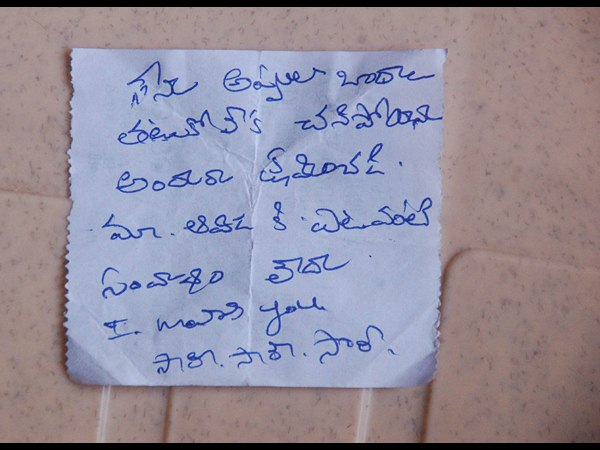 నేను అప్పుల బాధలు
తట్టుకోలేక చనిపోయాను
అందరూ క్షమించండి.
మా. ఆవిడ కి. ఎటువంటి
సంబంధం లేదు
I. you
సారీ. సారీ. సారీ.